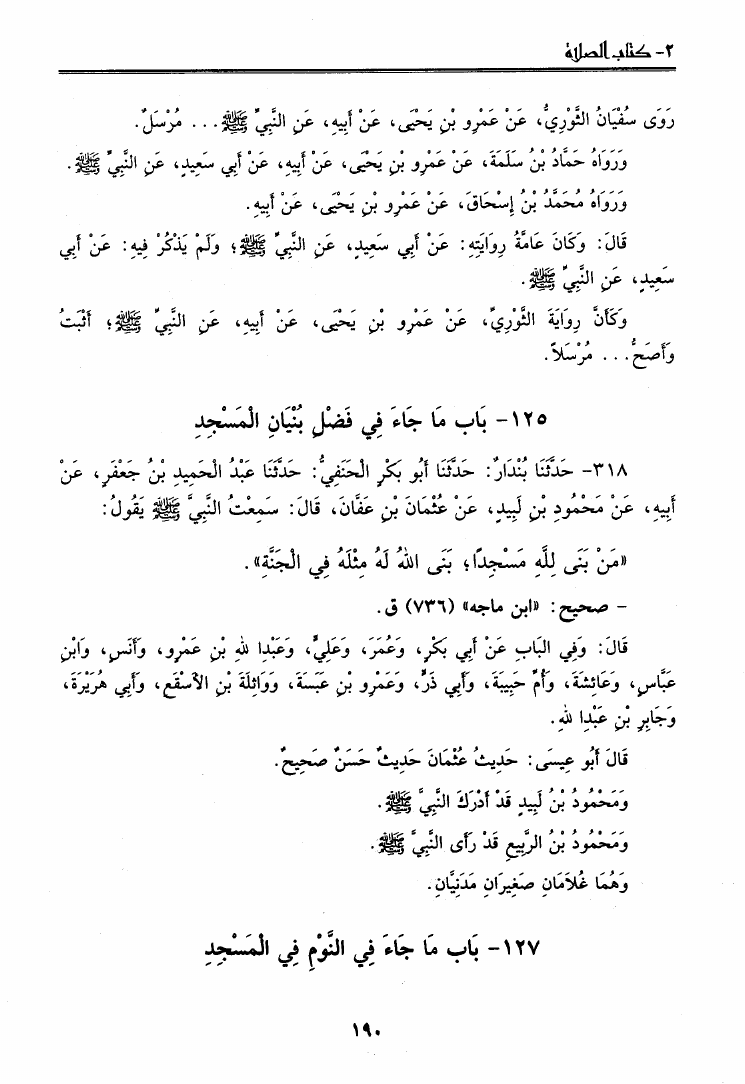 ٢- كتاب الصلاة
رَوَى سُفْيَانُ الثَّوْرِيُّ، عَنْ عَمْرِو بْنِ يَحْيَى، عَنْ أَبِيهِ، عَنِ النَّبِيِّ ﷺ... مُرْسَلٌ.
وَرَوَاهُ حَمَّادُ بْنُ سَلَمَةَ، عَنْ عَمْرِو بْنِ يَحْيَى، عَنْ أَبِيهِ، عَنْ أَبِي سَعِيدٍ، عَنِ النَّبِيِّ ﷺ.
وَرَوَاهُ مُحَمَّدُ بْنُ إِسْحَاقَ، عَنْ عَمْرِو بْنِ يَحْيَى، عَنْ أَبِيهِ.
قَالَ: وَكَانَ عَامَّةُ رِوَايَتِهِ: عَنْ أَبِي سَعِيدٍ، عَنِ النَّبِيِّ ﷺ؛ وَلَمْ يَذْكُرْ فِيهِ: عَنْ أَبِي
سَعِيدٍ، عَنِ النَّبِيِّ ﷺ.
وَكَأَنَّ رِوَايَةَ الثَّوْرِيِّ، عَنْ عَمْرِو بْنِ يَحْيَى، عَنْ أَبِيهِ، عَنِ النَّبِيِّ ﷺ؛ أَثْبَتُ
وَأَصَحُّ... مُرْسَلاً.
١٢٥- بَاب مَا جَاءَ فِي فَضْلِ بُنْيَانِ الْمَسْجِدِ
٣١٨- حَدَّثَنَا بُنْدَارٌ: حَدَّثَنَا أَبُو بَكْرٍ الْحَنَفِيُّ: حَدَّثَنَا عَبْدُ الْحَمِيدِ بْنُ جَعْفَرٍ، عَنْ
أَبِيهِ، عَنْ مَحْمُودِ بْنِ لَبِيدٍ، عَنْ عُثْمَانَ بْنِ عَفَّانَ، قَالَ: سَمِعْتُ النَّبِيَّ ﷺ يَقُولُ:
«مَنْ بَنَى لِلَّهِ مَسْجِدًا؛ بَنَى اللهُ لَهُ مِثْلَهُ فِي الْجَنَّةِ».
- صحيح: «ابن ماجه» (٧٣٦) ق.
قَالَ: وَفِي الْبَابِ عَنْ أَبِي بَكْرٍ، وَعُمَرَ، وَعَلِيٍّ، وَعَبْدِا للهِ بْنِ عَمْرٍو، وَأَنَسٍ، وَابْنِ
عَبَّاسٍ، وَعَائِشَةَ، وَأُمِّ حَبِيبَةَ، وَأَبِي ذَرٍّ، وَعَمْرِو بْنِ عَبَسَةَ، وَوَاثِلَةَ بْنِ الأَسْقَعِ، وَأَبِي هُرَيْرَةَ،
وَجَابِرِ بْنِ عَبْدِا للهِ.
قَالَ أَبُو عِيسَى: حَدِيثُ عُثْمَانَ حَدِيثٌ حَسَنٌ صَحِيحٌ.
وَمَحْمُودُ بْنُ لَبِيدٍ قَدْ أَدْرَكَ النَّبِيَّ ﷺ.
وَمَحْمُودُ بْنُ الرَّبِيعِ قَدْ رَأَى النَّبِيَّ ﷺ.
وَهُمَا غُلاَمَانِ صَغِيرَانِ مَدَنِيَّانِ.
١٢٧- بَاب مَا جَاءَ فِي النَّوْمِ فِي الْمَسْجِدِ
١٩٠